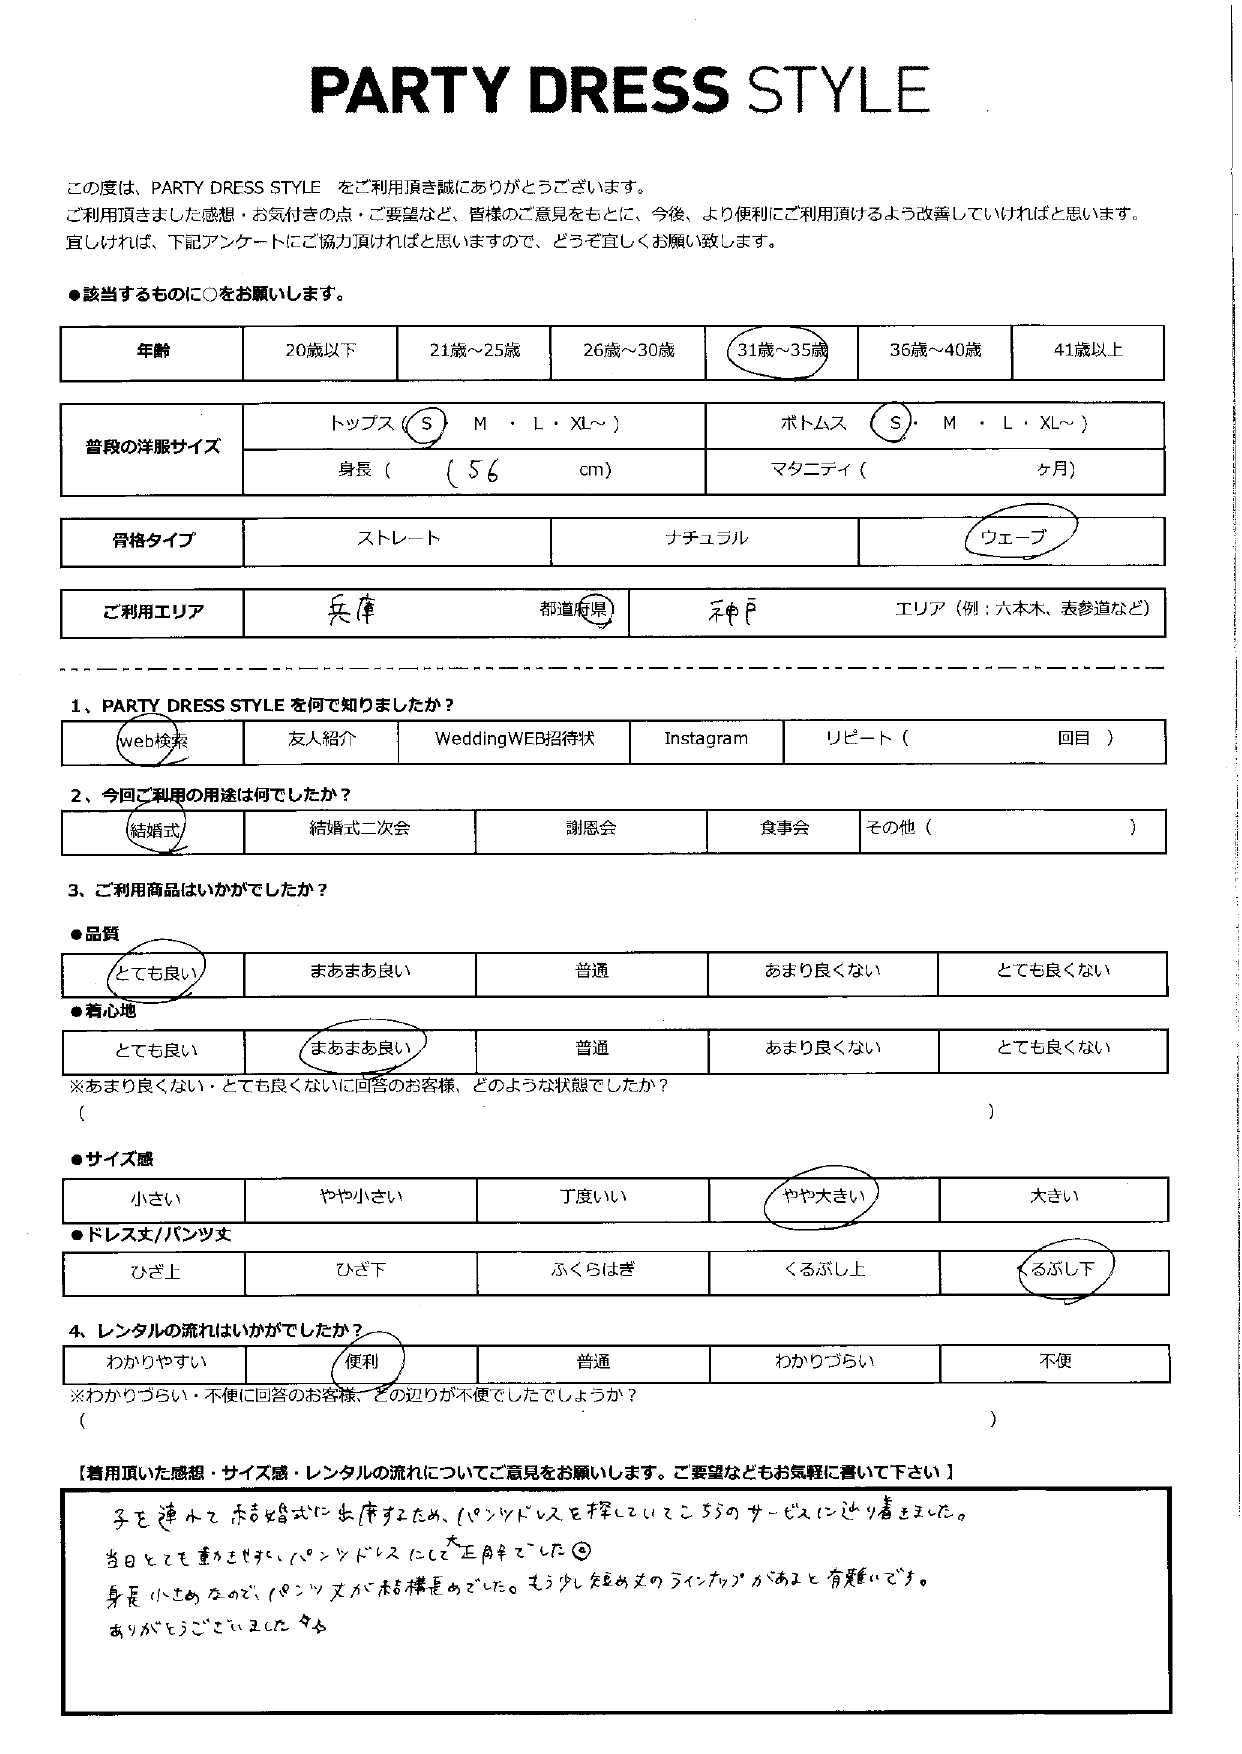 PARTY DRESS STYLE
この度は、PARTY DRESS STYLE　をご利用頂き誠にありがとうございます。
ご利用頂きました感想・お気付きの点・ご要望など、皆様のご意見をもとに、今後、より便利にご利用頂けるよう改善していければと思います。
宜しければ、下記アンケートにご協力頂ければと思いますので、どうぞ宜しくお願い致します。
●該当するものに○をお願いします。
年齢 20歳以下 21歳～25歳 26歳～30歳 31歳～35歳 36歳～40歳 41歳以上
普段の洋服サイズ
トップス ( S ・ M ・ L ・ XL～ ) ボトムス ( S ・ M ・ L ・ XL～ )
身長 ( 156 cm) マタニティ ( ヶ月)
骨格タイプ ストレート ナチュラル ウェーブ
ご利用エリア 兵庫 都道府県 神戸 エリア（例：六本木、表参道など）
1、PARTY DRESS STYLE を何で知りましたか？
web検索 友人紹介 WeddingWEB招待状 Instagram リピート ( 回目 )
2、今回ご利用の用途は何でしたか？
結婚式 結婚式二次会 謝恩会 食事会 その他 ( )
3、ご利用商品はいかがでしたか？
●品質
とても良い まあまあ良い 普通 あまり良くない とても良くない
●着心地
とても良い まあまあ良い 普通 あまり良くない とても良くない
※あまり良くない・とても良くないに回答のお客様、どのような状態でしたか？
( )
●サイズ感
小さい やや小さい 丁度いい やや大きい 大きい
●ドレス丈/パンツ丈
ひざ上 ひざ下 ふくらはぎ くるぶし上 くるぶし下
4、レンタルの流れはいかがでしたか？
わかりやすい 便利 普通 わかりづらい 不便
※わかりづらい・不便に回答のお客様、どの辺りが不便でしたでしょうか？
( )
【着用頂いた感想・サイズ感・レンタルの流れについてご意見をお願いします。ご要望などもお気軽に書いて下さい 】
子を連れて結婚式に出席するため、パンツドレスを探していてこちらのサービスに辿り着きました。
当日とても動きやすく、パンツドレスにして大正解でした◎
身長小さめなので、パンツ丈が結構長めでした。もう少し短め丈のラインナップがあると有難いです。
ありがとうございました